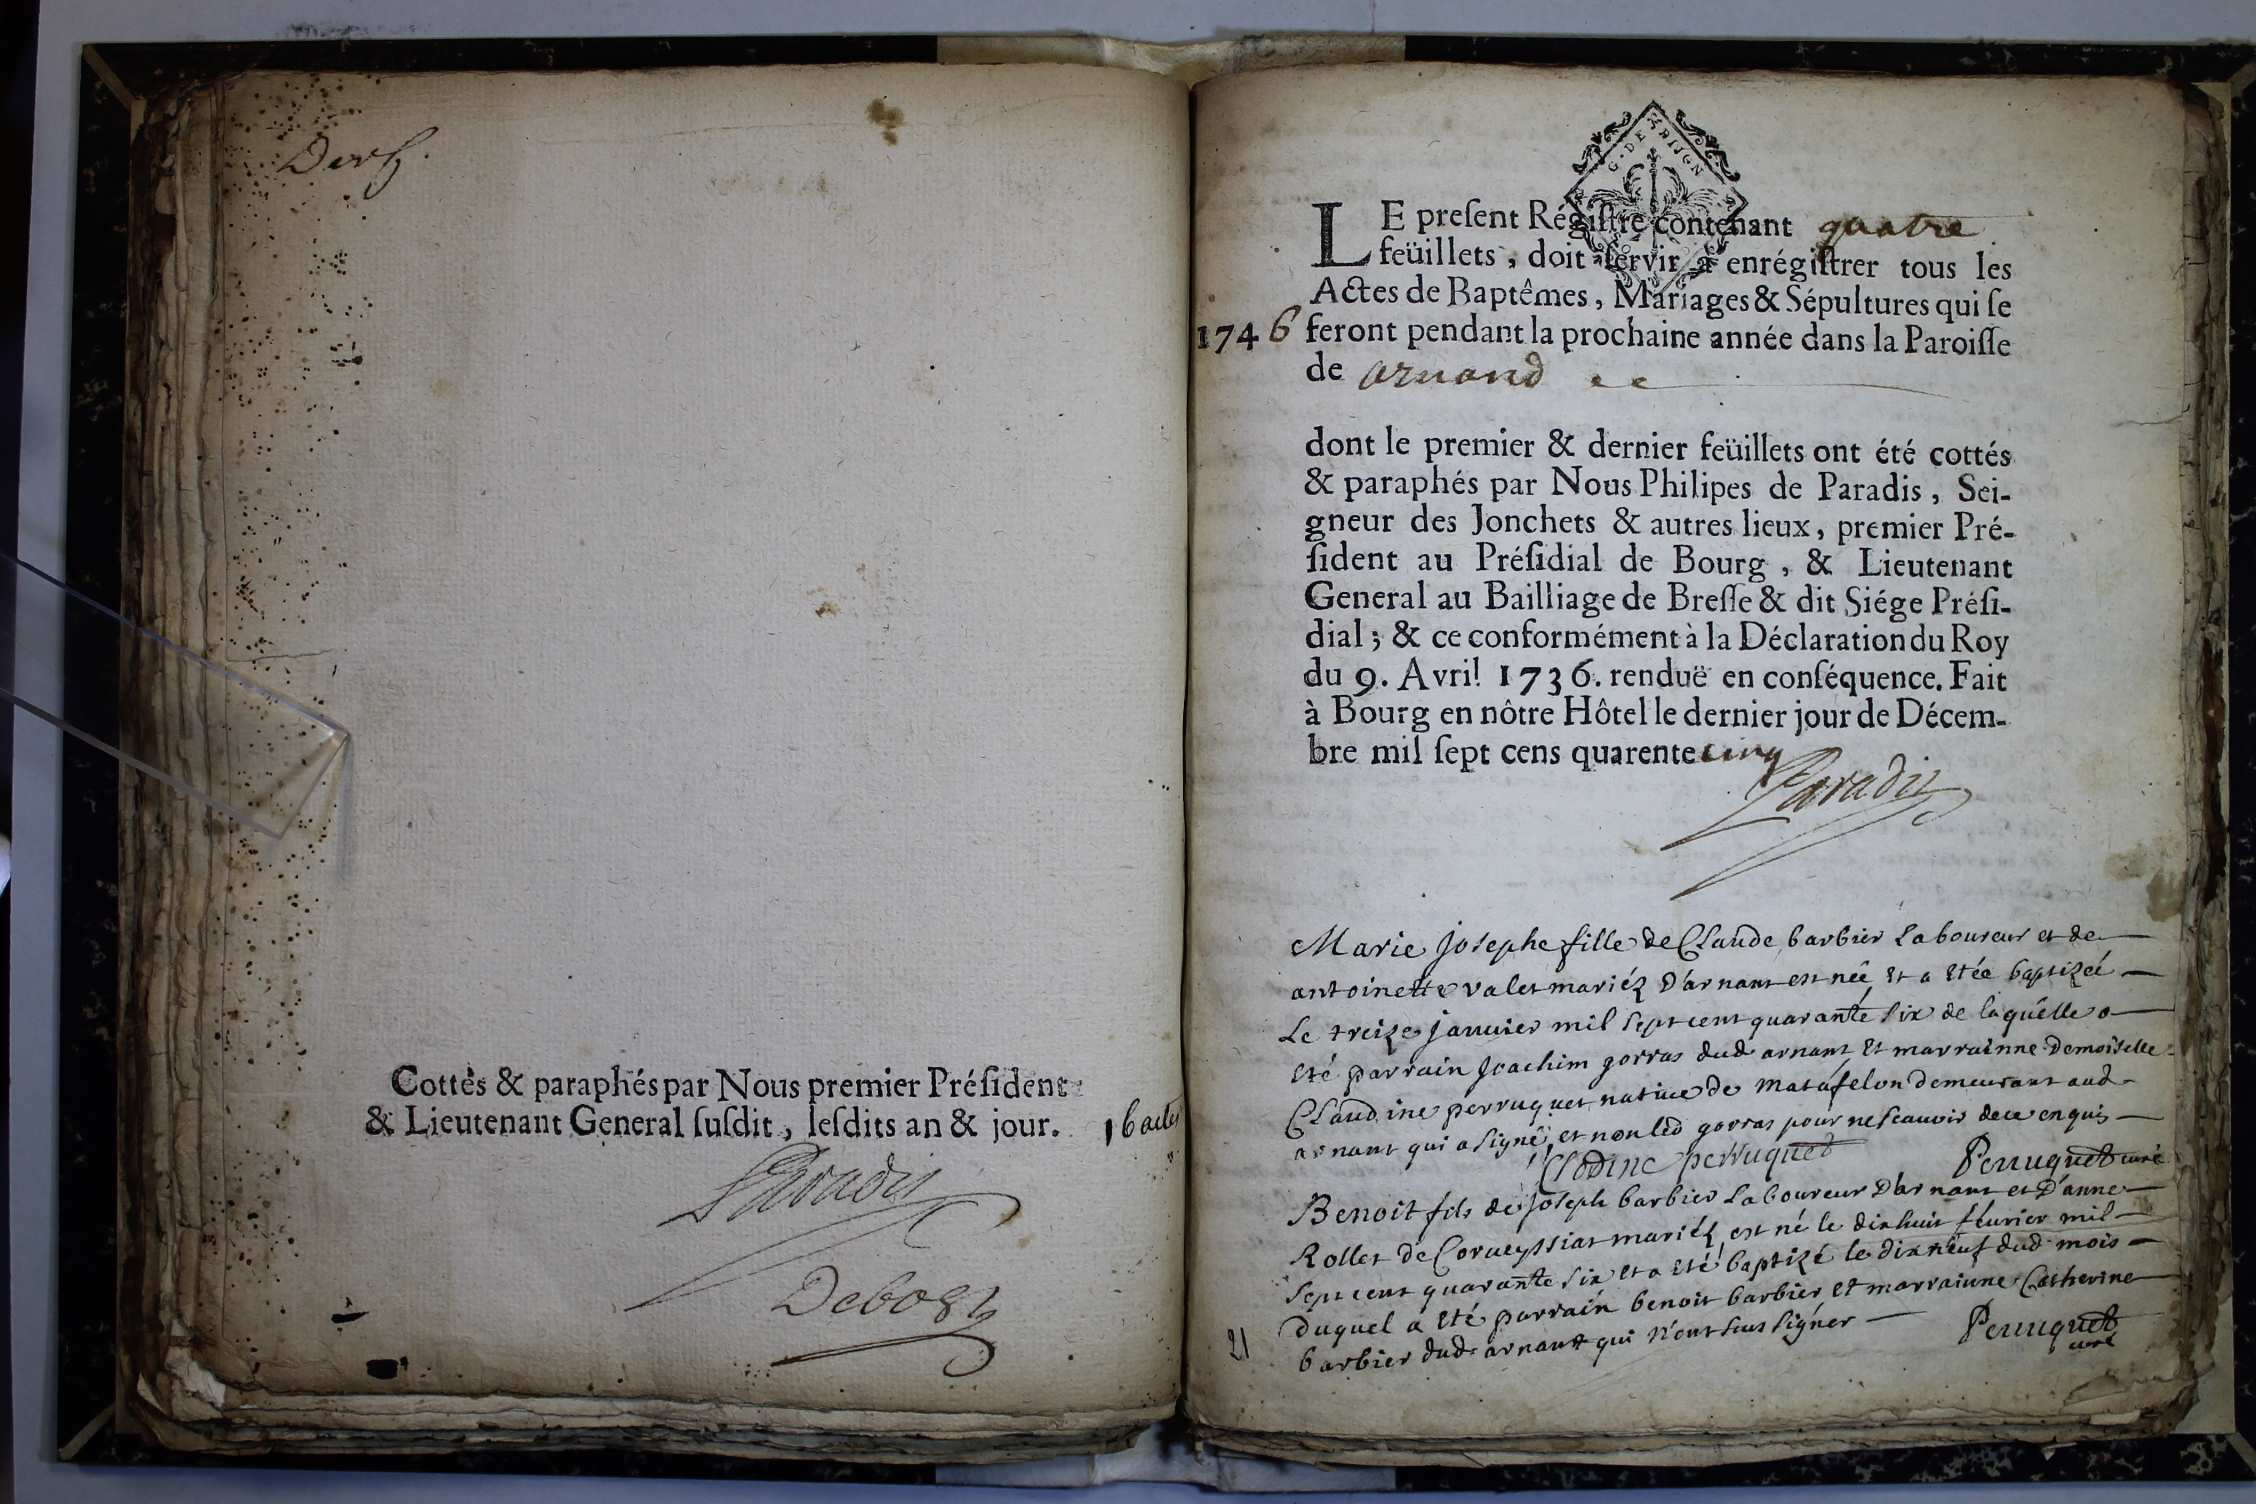 Cottés & paraphés par Nous premier Préſident
& Lieutenant General ſuſdit, leſdits an & jour.
16 actes
Paradis
G. DE DIJON
LE preſent Régiſtre contenant quatre
feüillets, doit ſervir à enrégiſtrer tous les
Actes de Baptêmes, Mariages & Sépultures qui ſe
1746 feront pendant la prochaine année dans la Paroiſſe
de arnand
dont le premier & dernier feüillets ont été cottés
& paraphés par Nous Philipes de Paradis, Sei-
gneur des Jonchets & autres lieux, premier Pré-
ſident au Préſidial de Bourg, & Lieutenant
General au Bailliage de Breſſe & dit Siége Préſi-
dial; & ce conformément à la Déclaration du Roy
du 9. Avril 1736. renduë en conſéquence. Fait
à Bourg en nôtre Hôtel le dernier jour de Décem-
bre mil ſept cens quarente cinq
Paradis
Marie Josephe fille de Claude barbier laboureur et de
antoinette valet mariéz d'arnant est née et a etée baptizeé
Le treize janvier mil sept cent quarante six de laquelle a
eté parrain Joachim gorras dud arnant et marrainne demoiselle
Claudine perruquet native de matafelon demeurant aud
arnant qui a signé, et non led gorras pour ne scauoir de ce enquis
Clodine perruquet Perruquet curé
Benoit fils de joseph barbier laboureur d'arnant et d'anne
Rollet de Corveyssiat mariéz, est né le dixhuit février mil
sept cent quarante six et a eté baptizé le dixneuf dud mois
duquel a eté parrain benoit barbier et marrainne Catherine
barbier dud arnant qui n'ont sceu signer Perruquet
curé
21